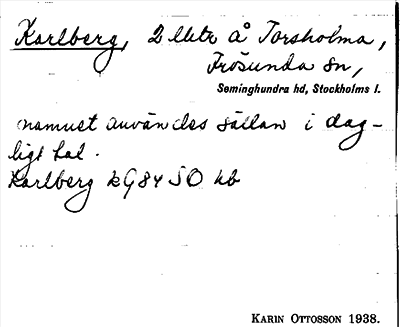 Karlberg, 2 lht å Torsholma,
Frösunda sn,
Seminghundra hd, Stockholms l.
namnet användes sällan i dag-
ligt tal.
Karlberg kG84 SO hb
KARIN OTTOSSON 1938.